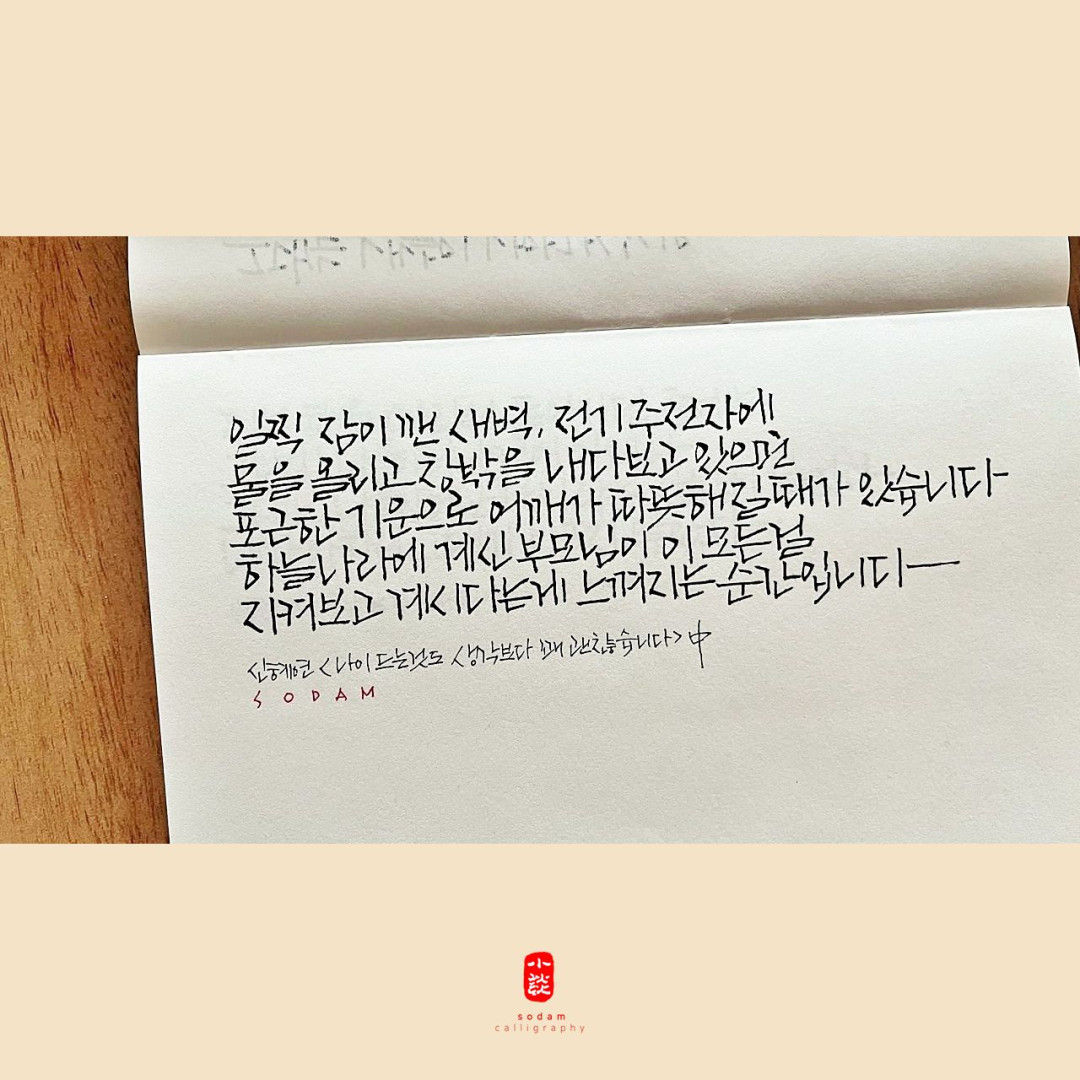 일찍 잠이 깬 새벽, 전기 주전자에
물을 올리고 창밖을 내다보고 있으면
포근한 기운으로 어깨가 따뜻해질 때가 있습니다
하늘나라에 계신 부모님이 이 모든 걸
지켜보고 계시다는게 느껴지는 순간입니다—
신혜연 <나이 드는것도 생각보다 꽤 괜찮습니다> 中
SODAM
小談
sodam
calligraphy